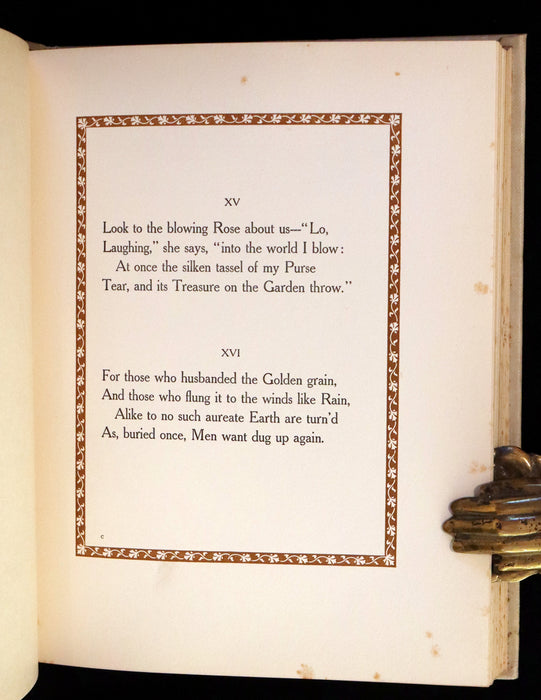 XV
Look to the blowing Rose about us—“Lo,
Laughing,” she says, “into the world I blow:
At once the silken tassel of my Purse
Tear, and its Treasure on the Garden throw.”
XVI
For those who husbanded the Golden grain,
And those who flung it to the winds like Rain,
Alike to no such aureate Earth are turn’d
As, buried once, Men want dug up again.
c